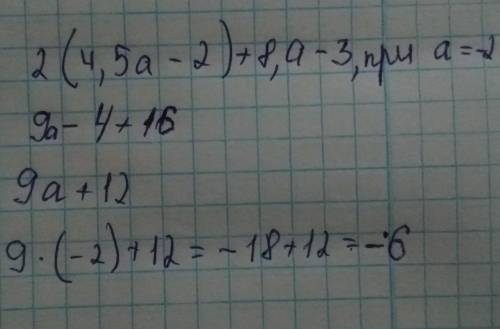 2(4,5a-2)+8,a-3, при a=-2
9a-4+16
9a+12
9·(-2)+12=-18+12=-6